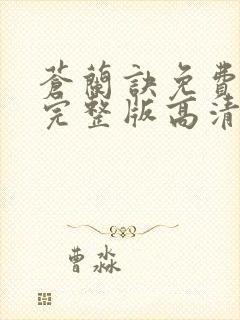 蒼蘭訣免費
完整版高清
曹淼